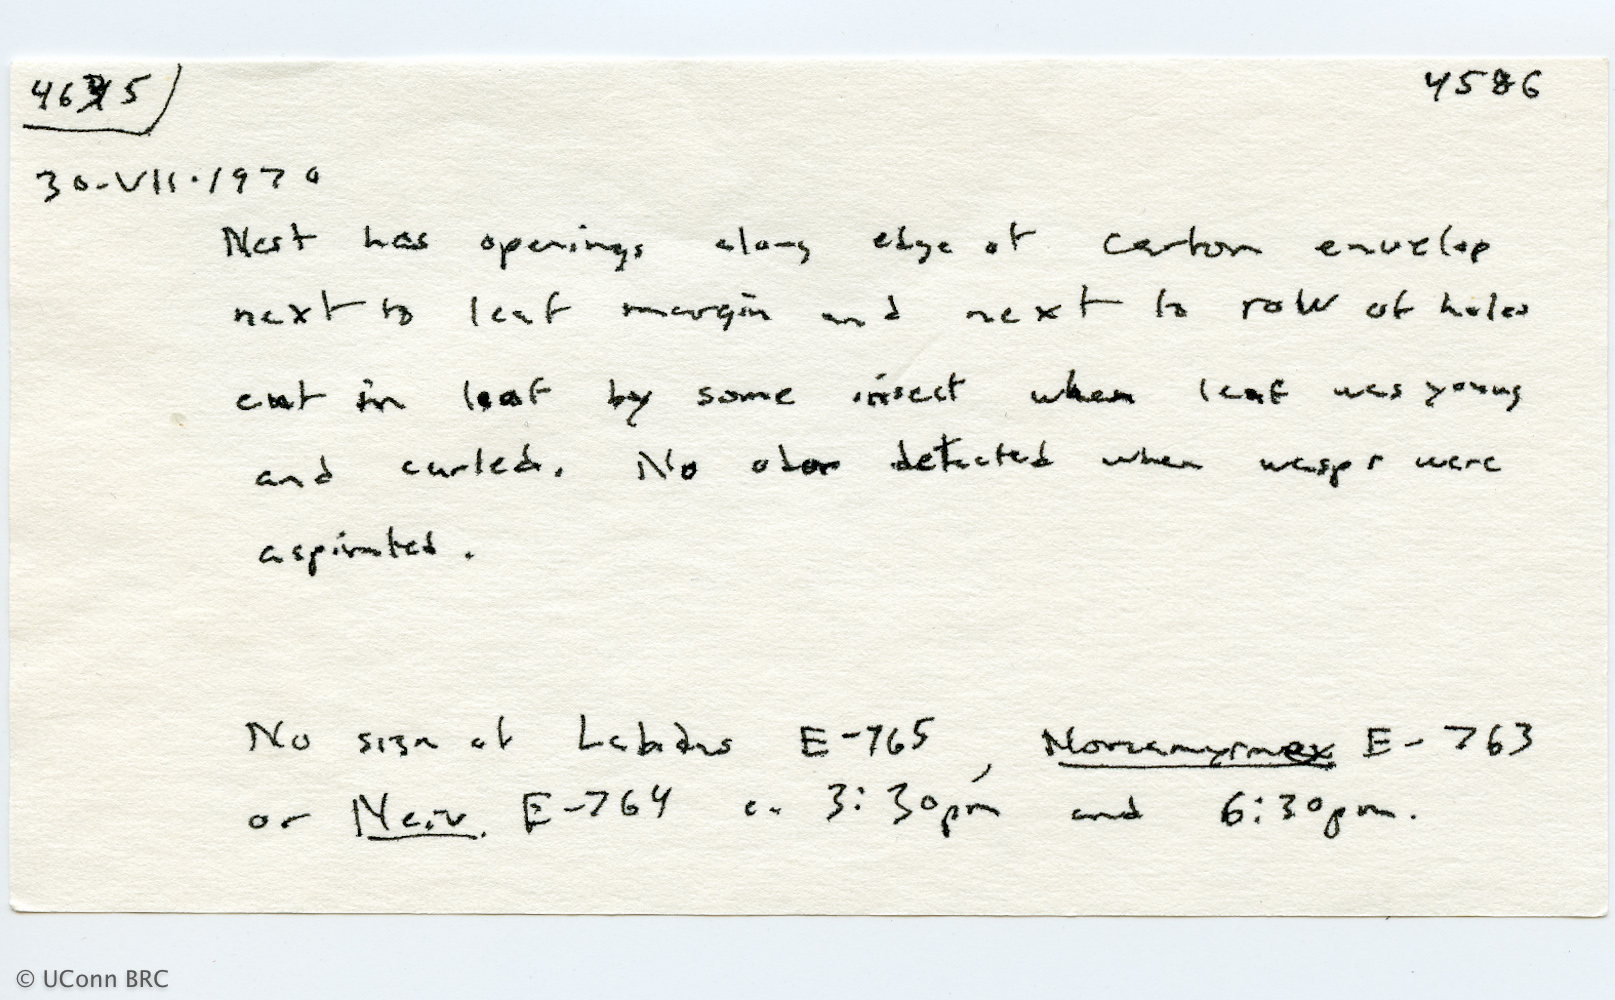 4635 4586
30-VII-1970
Nest has openings along edge of carton envelop
next to leaf margin and next to row of holes
cut in leaf by some insect when leaf was young
and curled. No odor detected when wasps were
aspirated.
No sign of Labidus E-765, Nomamyrmex E-763
or Neiv. E-764 c. 3:30pm and 6:30pm.
© UConn BRC